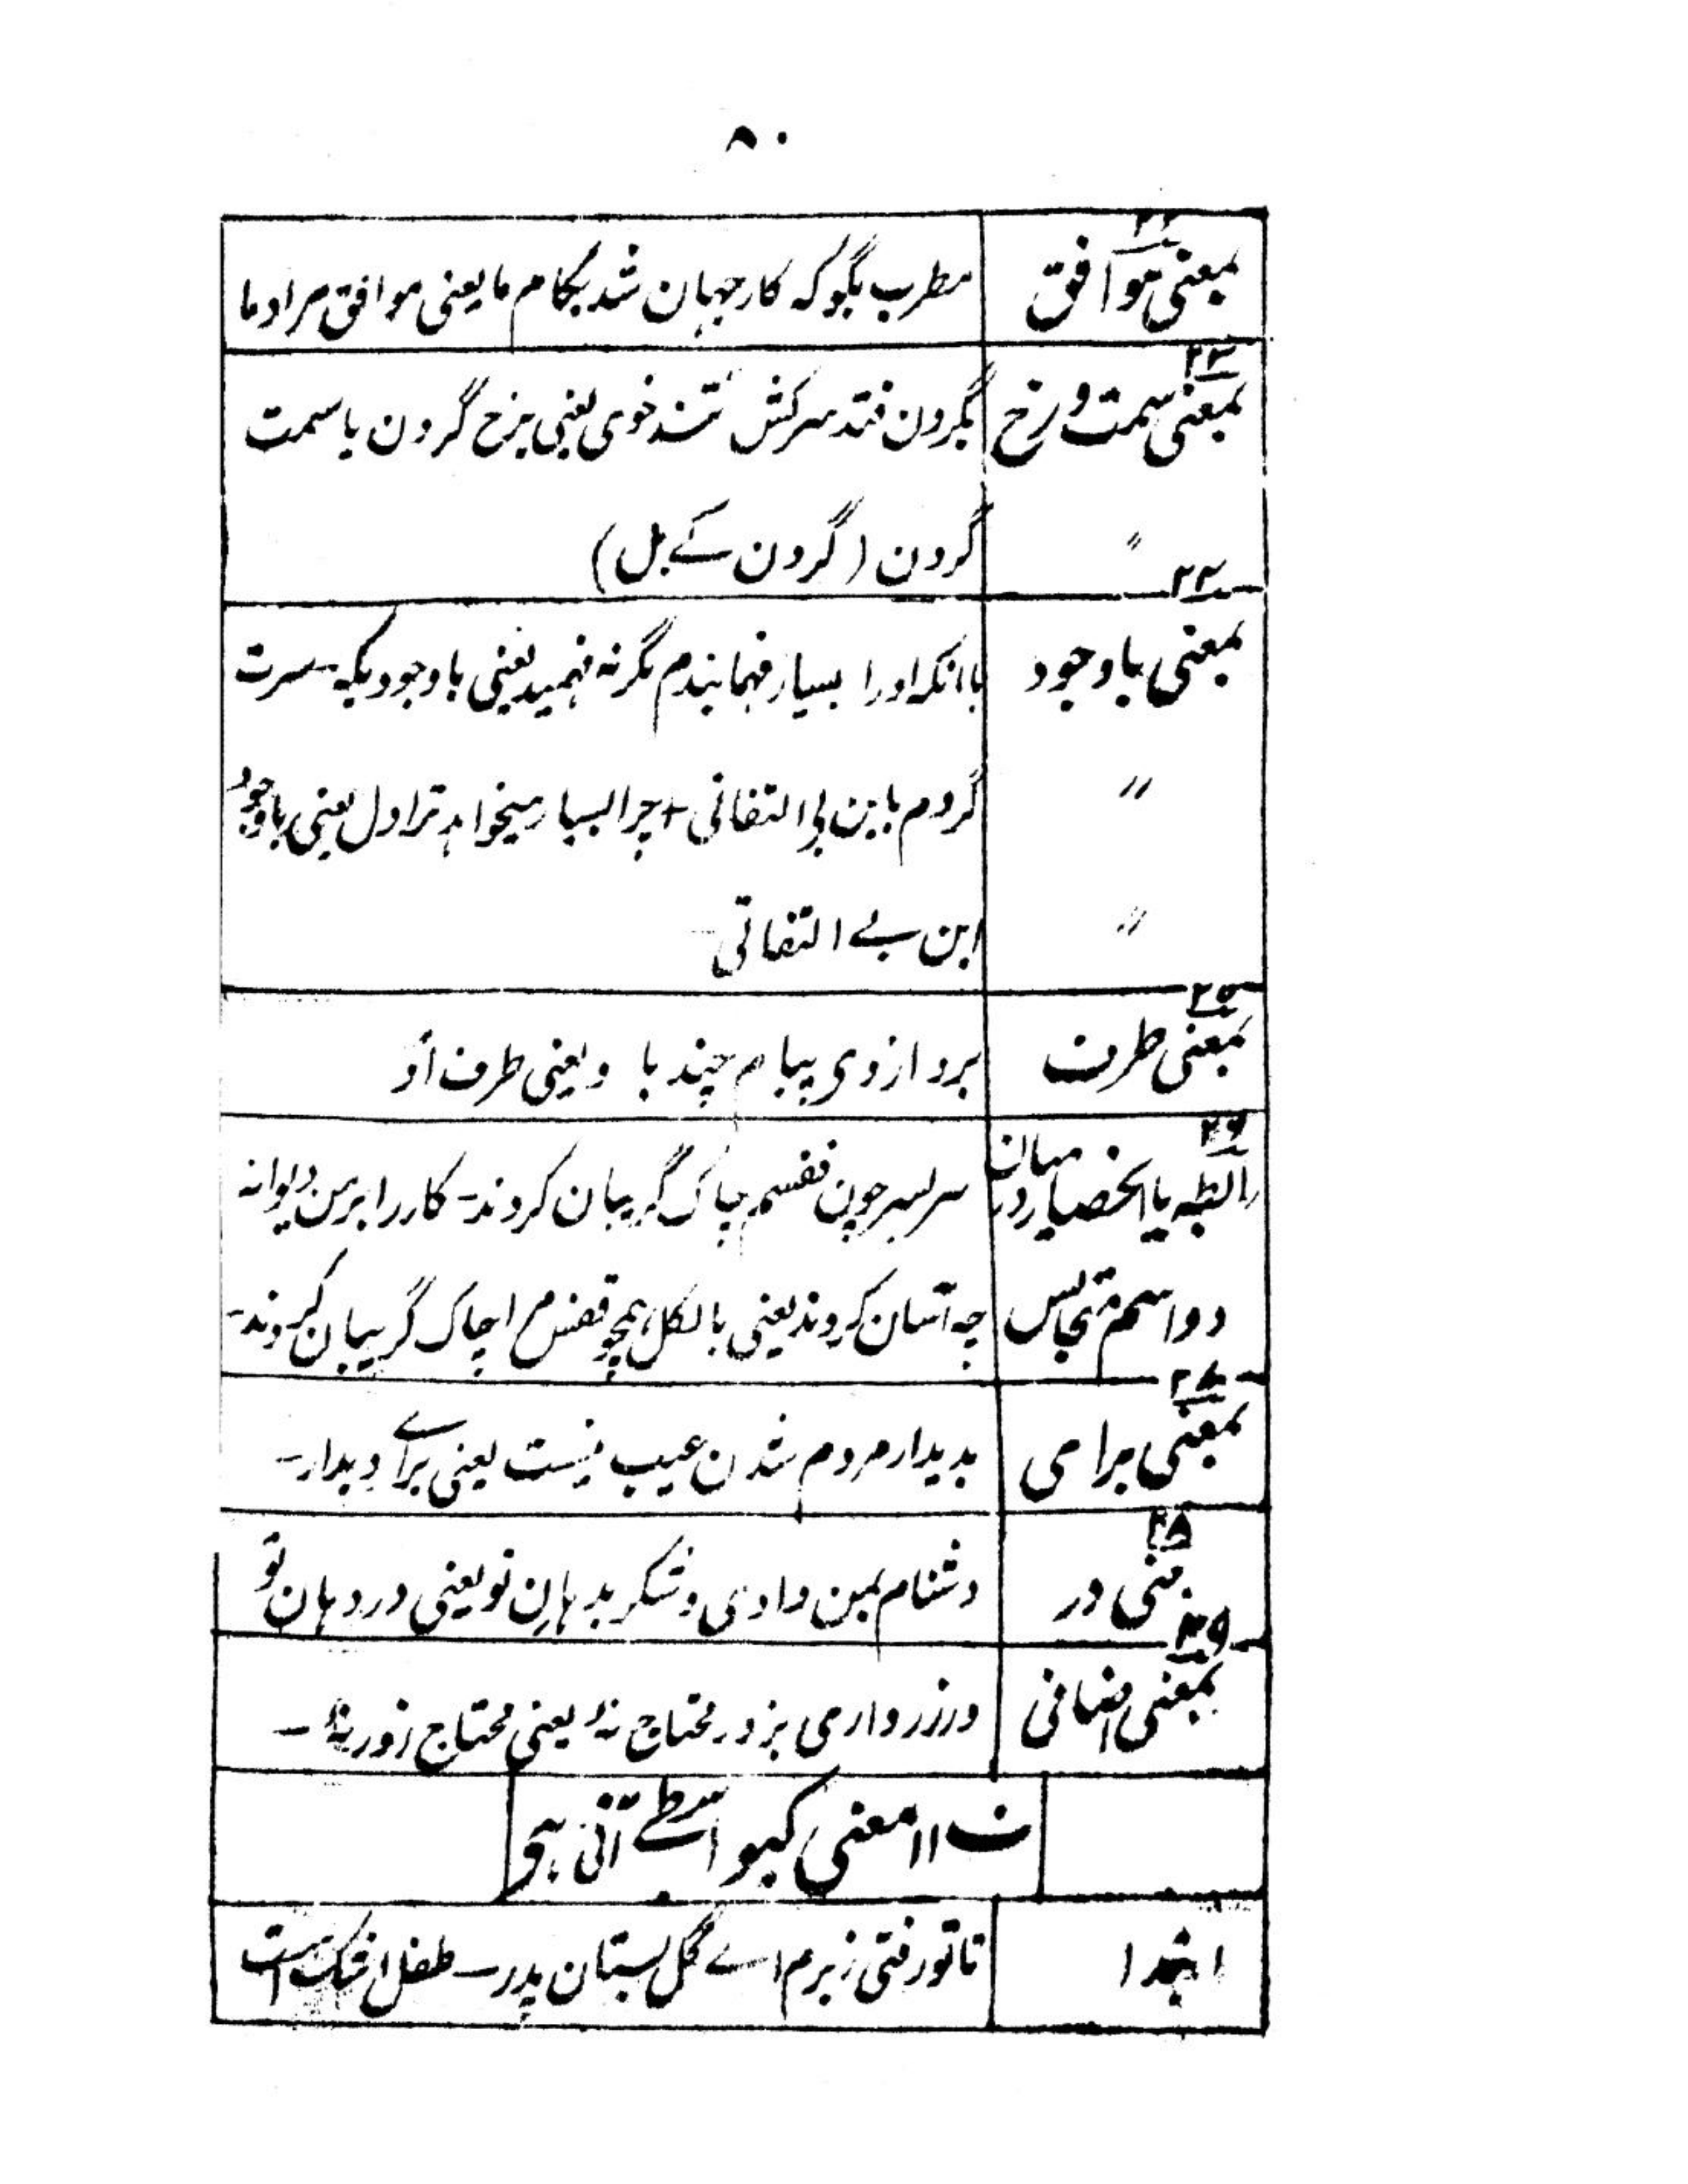 ۸۰
۲۲
بمعنی موافق مطرب بگو کہ کار جہان شد بکام ما یعنی موافق مراد ما
۲۳
بمعنی سمت و رخ بگردن فتد سرکش تند خوی یعنی برخ گردن یا سمت
〃 گردن (گردن کے بل)
۲۴
بمعنی باوجود باانکہ اورا بسیار فہمانیدم مگر نہ فہمید یعنی باوجودیکہ - سرت
〃 گردم باین بی التفاتی + چرا بسیار میخواہد ترا دل یعنی باوجود
〃 این بے التفاتی
۲۵
بمعنی طرف برد از وی پیام چند با و یعنی طرف او
۲۶
رابطہ یا انحصار در میان سربسر چون قفسم چاک گریبان کردند - کار را بر من دیوانہ
دو اسم متجانس چہ آسان کردند یعنی بالکل ہمچو قفس مرا چاک گریبان کردند -
بمعنی برای بدیدار مردم شدن عیب نیست یعنی براے دیدار -
۲۸
معنی در دشنام بمن دادی و شکر بدہانِ تو یعنی در دہان تو
۲۹
بمعنی اضافی ورزر داری بزور محتاج نۂ یعنی محتاج زور نۂ -
ف ۱۱ معنی کیواسطے آتی ہی
ابتدا تا تو رفتی زبرم اے گل بستان پدر - طفل اشک است